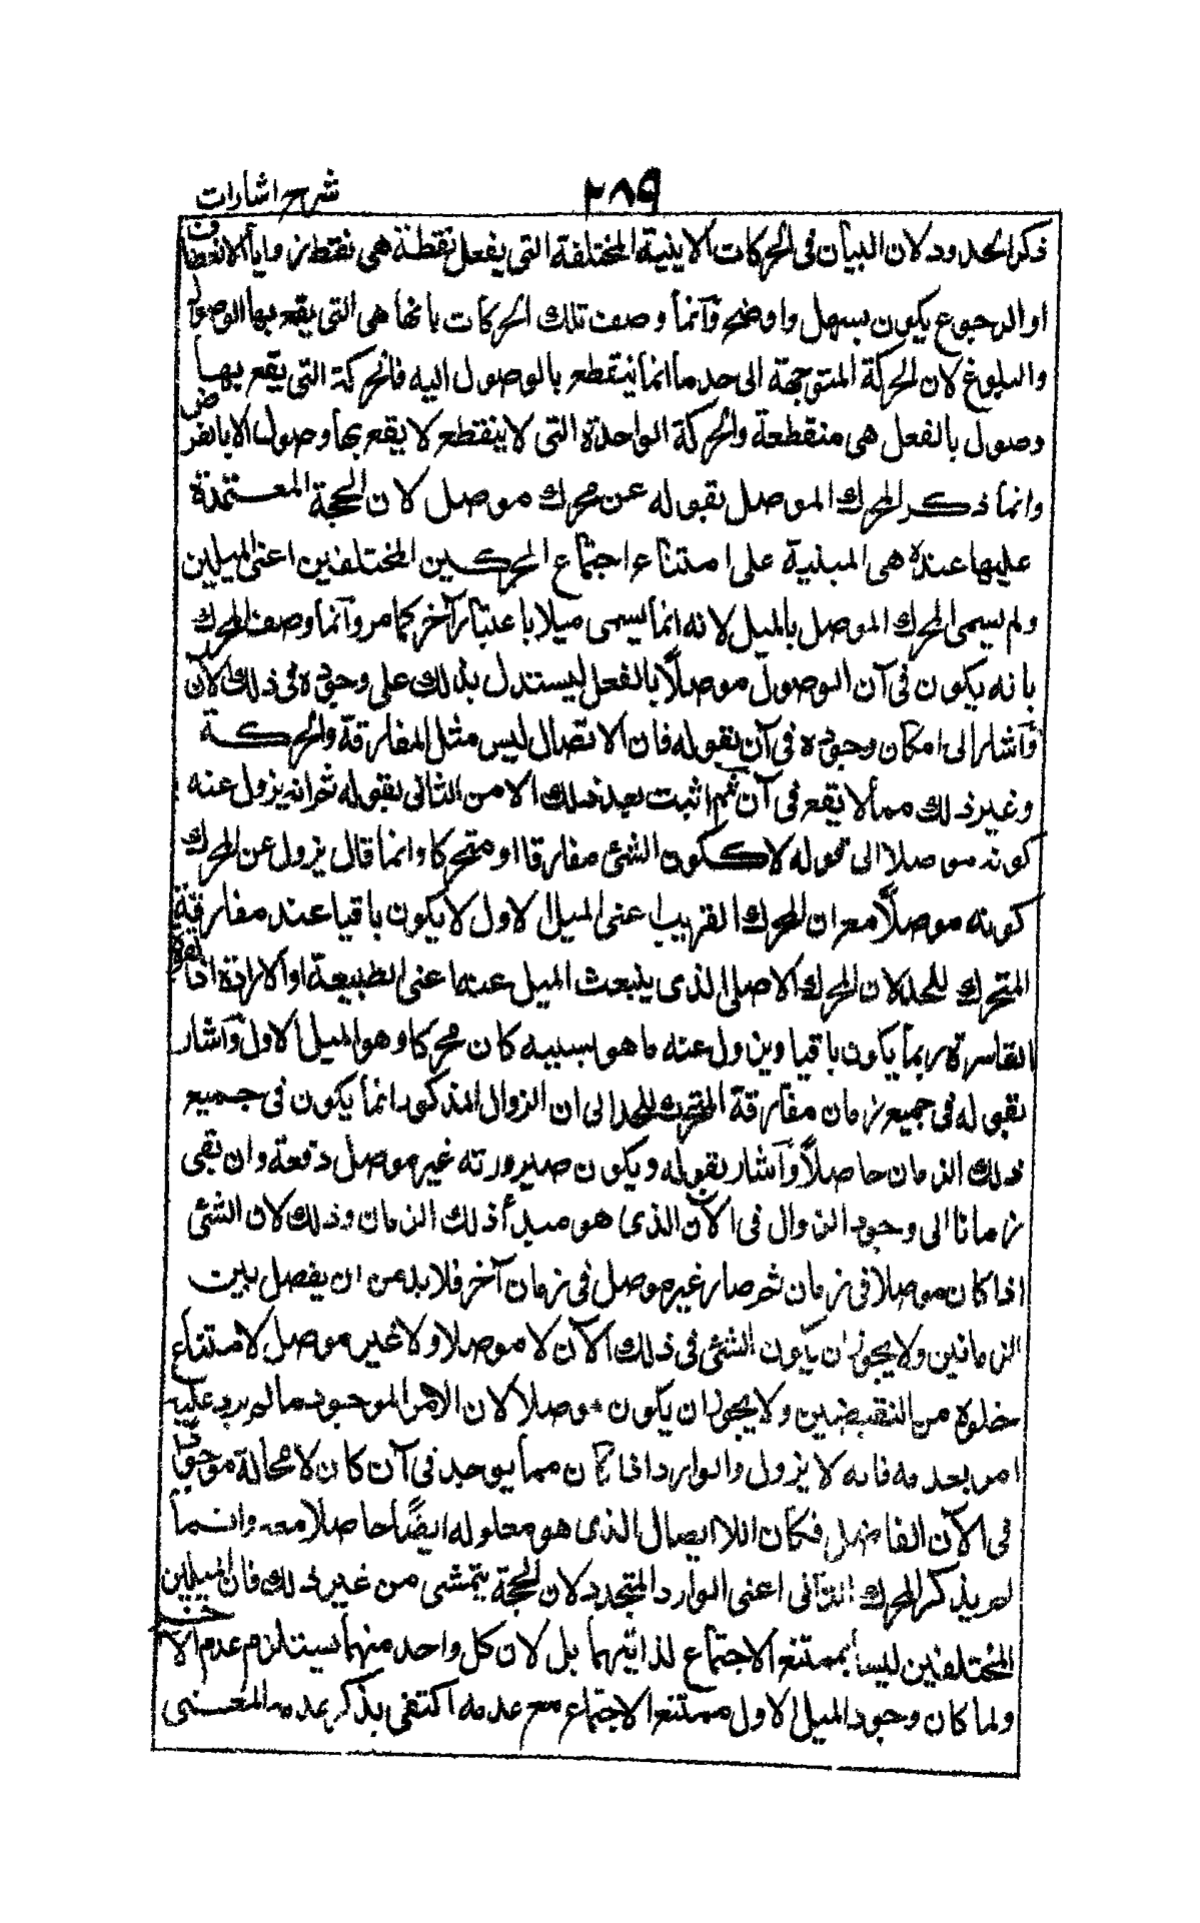 ٢٨٩
شرح اشارات
ذكر الحدود لان البيان فى الحركات الاينية المختلفة التى يفعل نقطة هى نقط زوايا الانعطاف
او الرجوع يكون سهل واوضح وآنما وصف تلك الحركات بانها هى التى يقع بها الوصول
والبلوغ لان الحركة المتوجهة الى حد ما انما ينقطع بالوصول اليه فالحركة التى يقع بها
وصول بالفعل هى منقطعة والحركة الواحدة التى لا ينقطع لا يقع بها وصول الا بالفرض
وانما ذكر المحرك الموصل بقوله عن محرك موصل لان الحجة المعتمدة
عليها عنده هى المبنية على امتناع اجتماع المحركين المختلفين اعنى الميلين
ولم يسمى المحرك الموصل بالميل لانه انما يسمى ميلا باعتبار آخر كما مر وآنما وصف المحرك
بانه يكون فى آن الوصول موصلاً بالفعل ليستدل بذلك على وجوده فى ذلك الآن
وآشار الى امكان وجوده فى آن بقوله فان الاتصال ليس مثل المفارقة والحركة
وغير ذلك مما لا يقع فى آن ثم اثبت بعد ذلك الامن الثانى بقوله ثم انه يزول عنه
كونه موصلا الى قوله لا ككون الشئ مفارقا او متحركا وانما قال يزول عن المحرك
كونه موصلاً مع ان المحرك القريب اعنى الميل الاول لا يكون باقيا عند مفارقة
المتحرك للحد لان المحرك الاصلى الذى ينبعث الميل عنه اعنى الطبيعة او الارادة اذا القوة
القاسرة ربما يكون باقيا ويزول عنه ما هو بسببه كان محركا وهو الميل الاول وآشار
بقوله فى جميع زمان مفارقة المتحرك للحد الى ان الزوال المذكور انما يكون فى جميع
ذلك الزمان حاصلاً وآشار بقوله ويكون صيرورته غير موصل دفعة وان بقى
زمانا الى وجود الزوال فى الآن الذى هو مبدأ ذلك الزمان وذلك لان الشئ
اذا كان موصلا فى زمان ثم صار غير موصل فى زمان آخر فلا بد من ان يفصل بين
الزمانين ولا يجوز ان يكون الشئ فى ذلك الآن لا موصلا ولا غير موصل لامتناع
خلوه من النقيضين ولا يجوز ان يكون موصلا لان الامر الموجود ما لم يرد عليه
امر يعدمه فانه لا يزول والوارد اذا كان مما يوجد فى آن كان لا محالة موجودا
فى الآن الفاصل فكان اللاايصال الذى هو معلوله ايضًا حاصلا معه وانما
لم يذكر المحرك الثانى اعنى الوارد المتجدد لان الحجة يتمشى من غير ذلك فان الميلين
المختلفين ليسا بممتنع الاجتماع لذاتيهما بل لان كل واحد منهما يستلزم عدم الآخر
ولما كان وجود الميل الاول ممتنع الاجتماع مع عدمه اكتفى بذكر عدمه المعنى